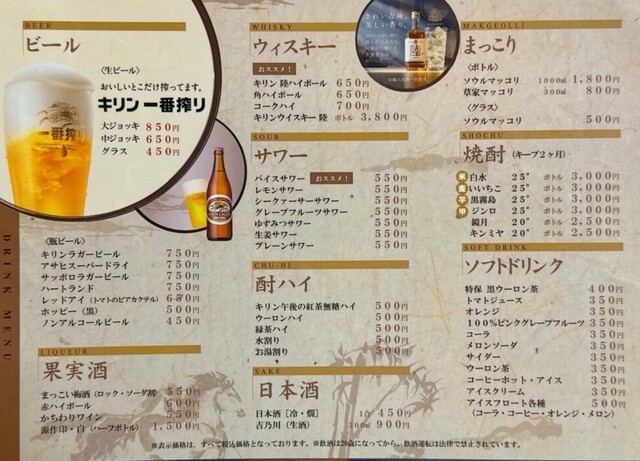 DRINK MENU
BEER
ビール
〈生ビール〉
おいしいとこだけ搾ってます。
キリン 一番搾り
大ジョッキ 850円
中ジョッキ 650円
グラス 450円
一番搾り
〈瓶ビール〉
キリンラガービール 750円
アサヒスーパードライ 750円
サッポロラガービール 750円
ハートランド 750円
レッドアイ（トマトのビアカクテル）670円
ホッピー（黒） 500円
ノンアルコールビール 450円
LIQUEUR
果実酒
まっこい梅酒（ロック・ソーダ割） 550円
赤ハイボール 600円
かちわりワイン 550円
源作印・白（ハーフボトル） 1,500円
WHISKY
ウィスキー
おススメ！
キリン 陸ハイボール 650円
角ハイボール 650円
コークハイ 700円
キリンウイスキー 陸 ボトル 3,800円
きれいな味。
美しい香り。
陸
SOUR
サワー
バイスサワー おススメ！ 550円
レモンサワー 550円
シークァーサーサワー 550円
グレープフルーツサワー 550円
ゆずみつサワー 550円
生姜サワー 550円
プレーンサワー 550円
CHU-HI
酎ハイ
キリン午後の紅茶無糖ハイ 500円
ウーロンハイ 500円
緑茶ハイ 500円
水割り 500円
お湯割り 500円
SAKE
日本酒
日本酒［冷・燗］ 1合 450円
吉乃川（生酒） 300ml 900円
MAKGEOLLI
まっこり
〈ボトル〉
ソウルマッコリ 1000ml 1,800円
草家マッコリ 300ml 800円
〈グラス〉
ソウルマッコリ 500円
SHOCHU
焼酎（キープ2ヶ月）
米 白水 25° ボトル 3,000円
麦 いいちこ 25° ボトル 3,000円
芋 黒霧島 25° ボトル 3,000円
甲 ジンロ 25° ボトル 3,000円
鏡月 20° ボトル 2,500円
キンミヤ 20° ボトル 2,500円
SOFT DRINK
ソフトドリンク
特保 黒ウーロン茶 400円
トマトジュース 350円
オレンジ 350円
100%ピンクグレープフルーツ 350円
コーラ 350円
メロンソーダ 350円
サイダー 350円
ウーロン茶 350円
コーヒーホット・アイス 350円
アイスクリーム 350円
アイスフロート各種 500円
（コーラ・コーヒー・オレンジ・メロン）
※表示価格は、すべて税込価格となっております。※飲酒は20歳になってから。飲酒運転は法律で禁止されています。